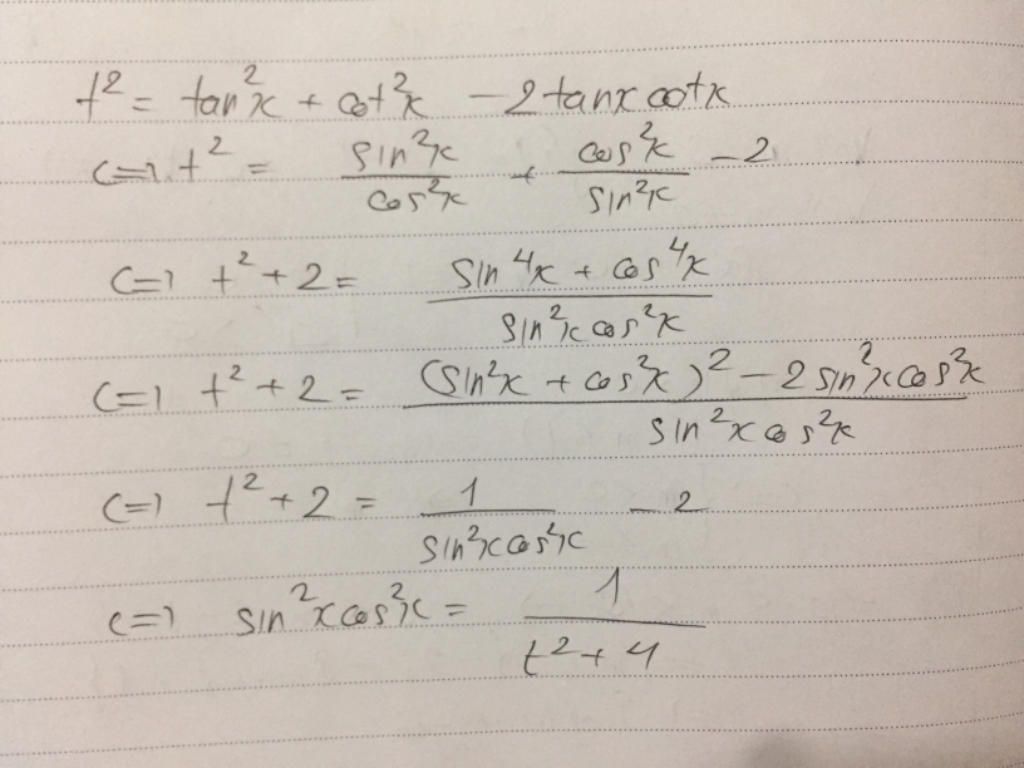 t² = tan²x + cot²x - 2tanx cotx
<=> t² = sin²x/cos²x + cos²x/sin²x - 2
<=> t² + 2 = (sin⁴x + cos⁴x)/(sin²x cos²x)
<=> t² + 2 = ((sin²x + cos²x)² - 2 sin²x cos²x)/(sin²x cos²x)
<=> t² + 2 = 1/(sin²x cos²x) - 2
<=> sin²x cos²x = 1/(t² + 4)